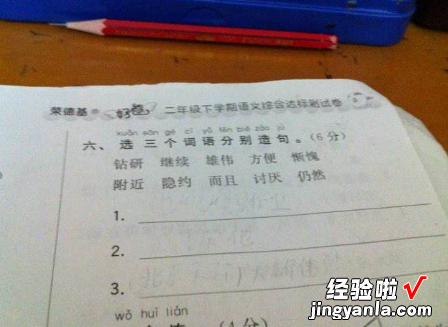 荣德基 好卷 二年级下学期语文综合达标测试卷
xuǎn sān gè cí yǔ fēn bié zào jù
六、选三个词语分别造句。(6分)
钻研 继续 雄伟 方便 惭愧
附近 隐约 而且 讨厌 仍然
1.
2.
3.
wǒ huì lián
经验啦√
jingyanla.com